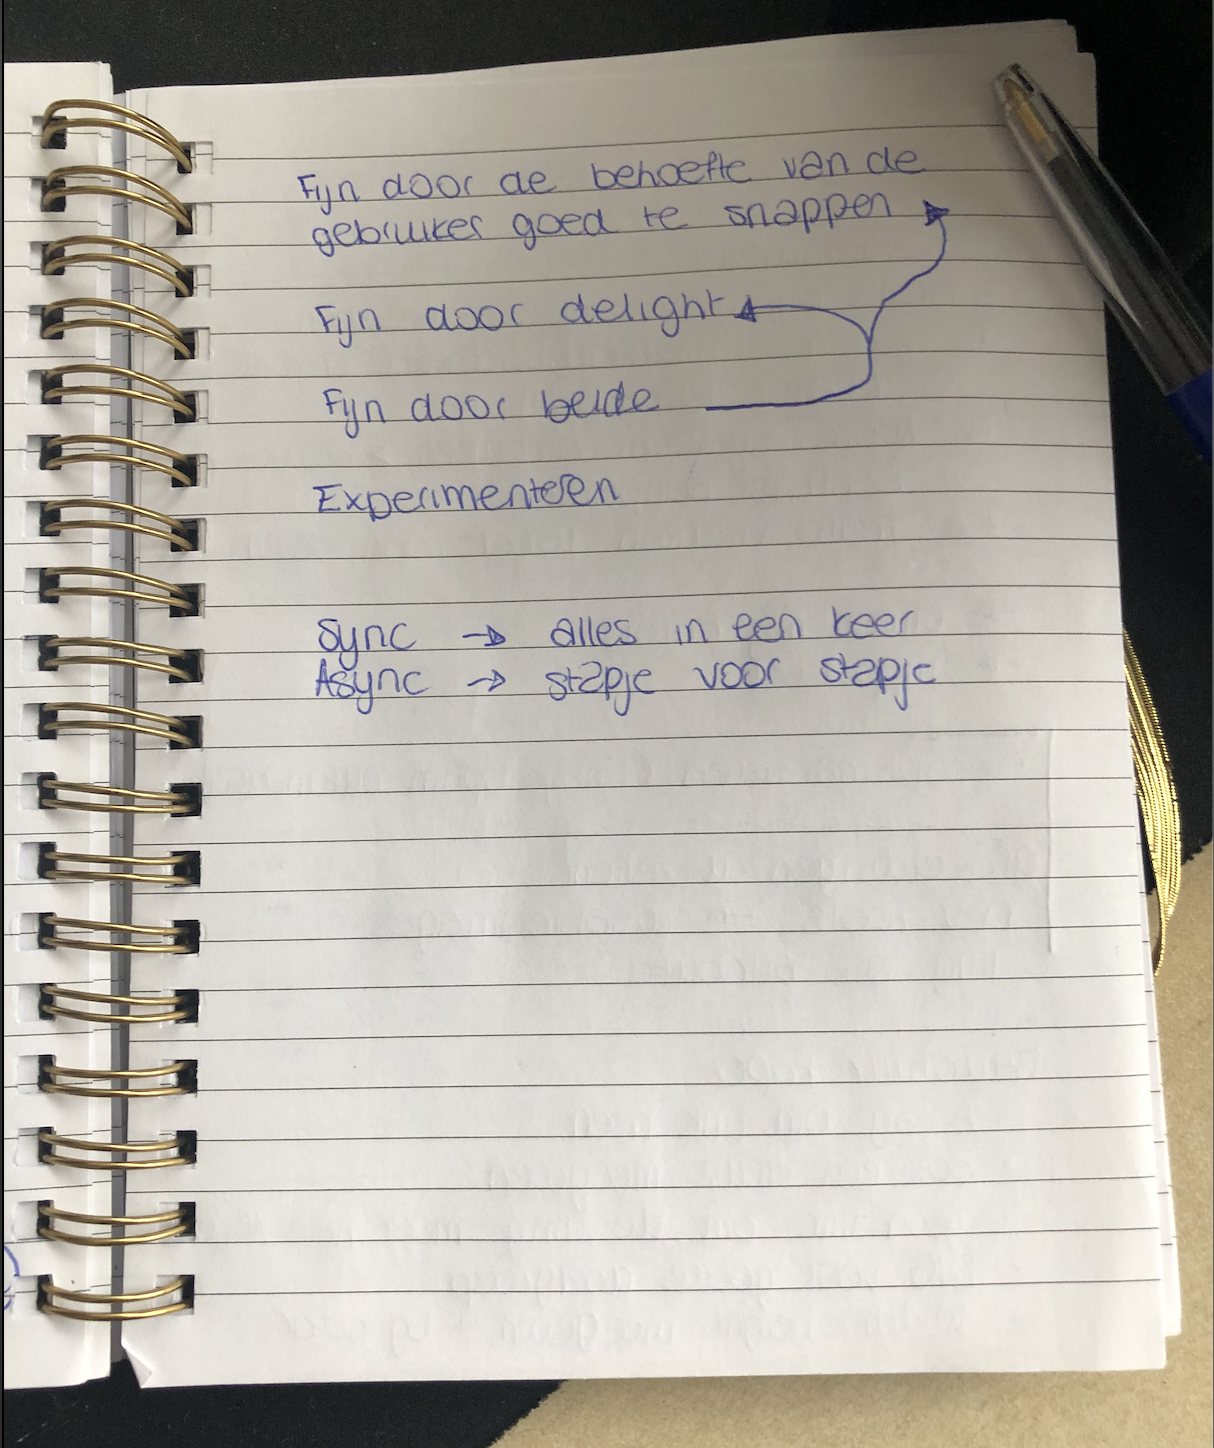 Fijn door de behoefte van de
gebruiker goed te snappen
Fijn door delight
Fijn door beide
Experimenteren
Sync → alles in een keer
Async → stapje voor stapje